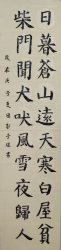 日暮蒼山遠天寒白屋貧
柴門聞犬吠風雪夜歸人